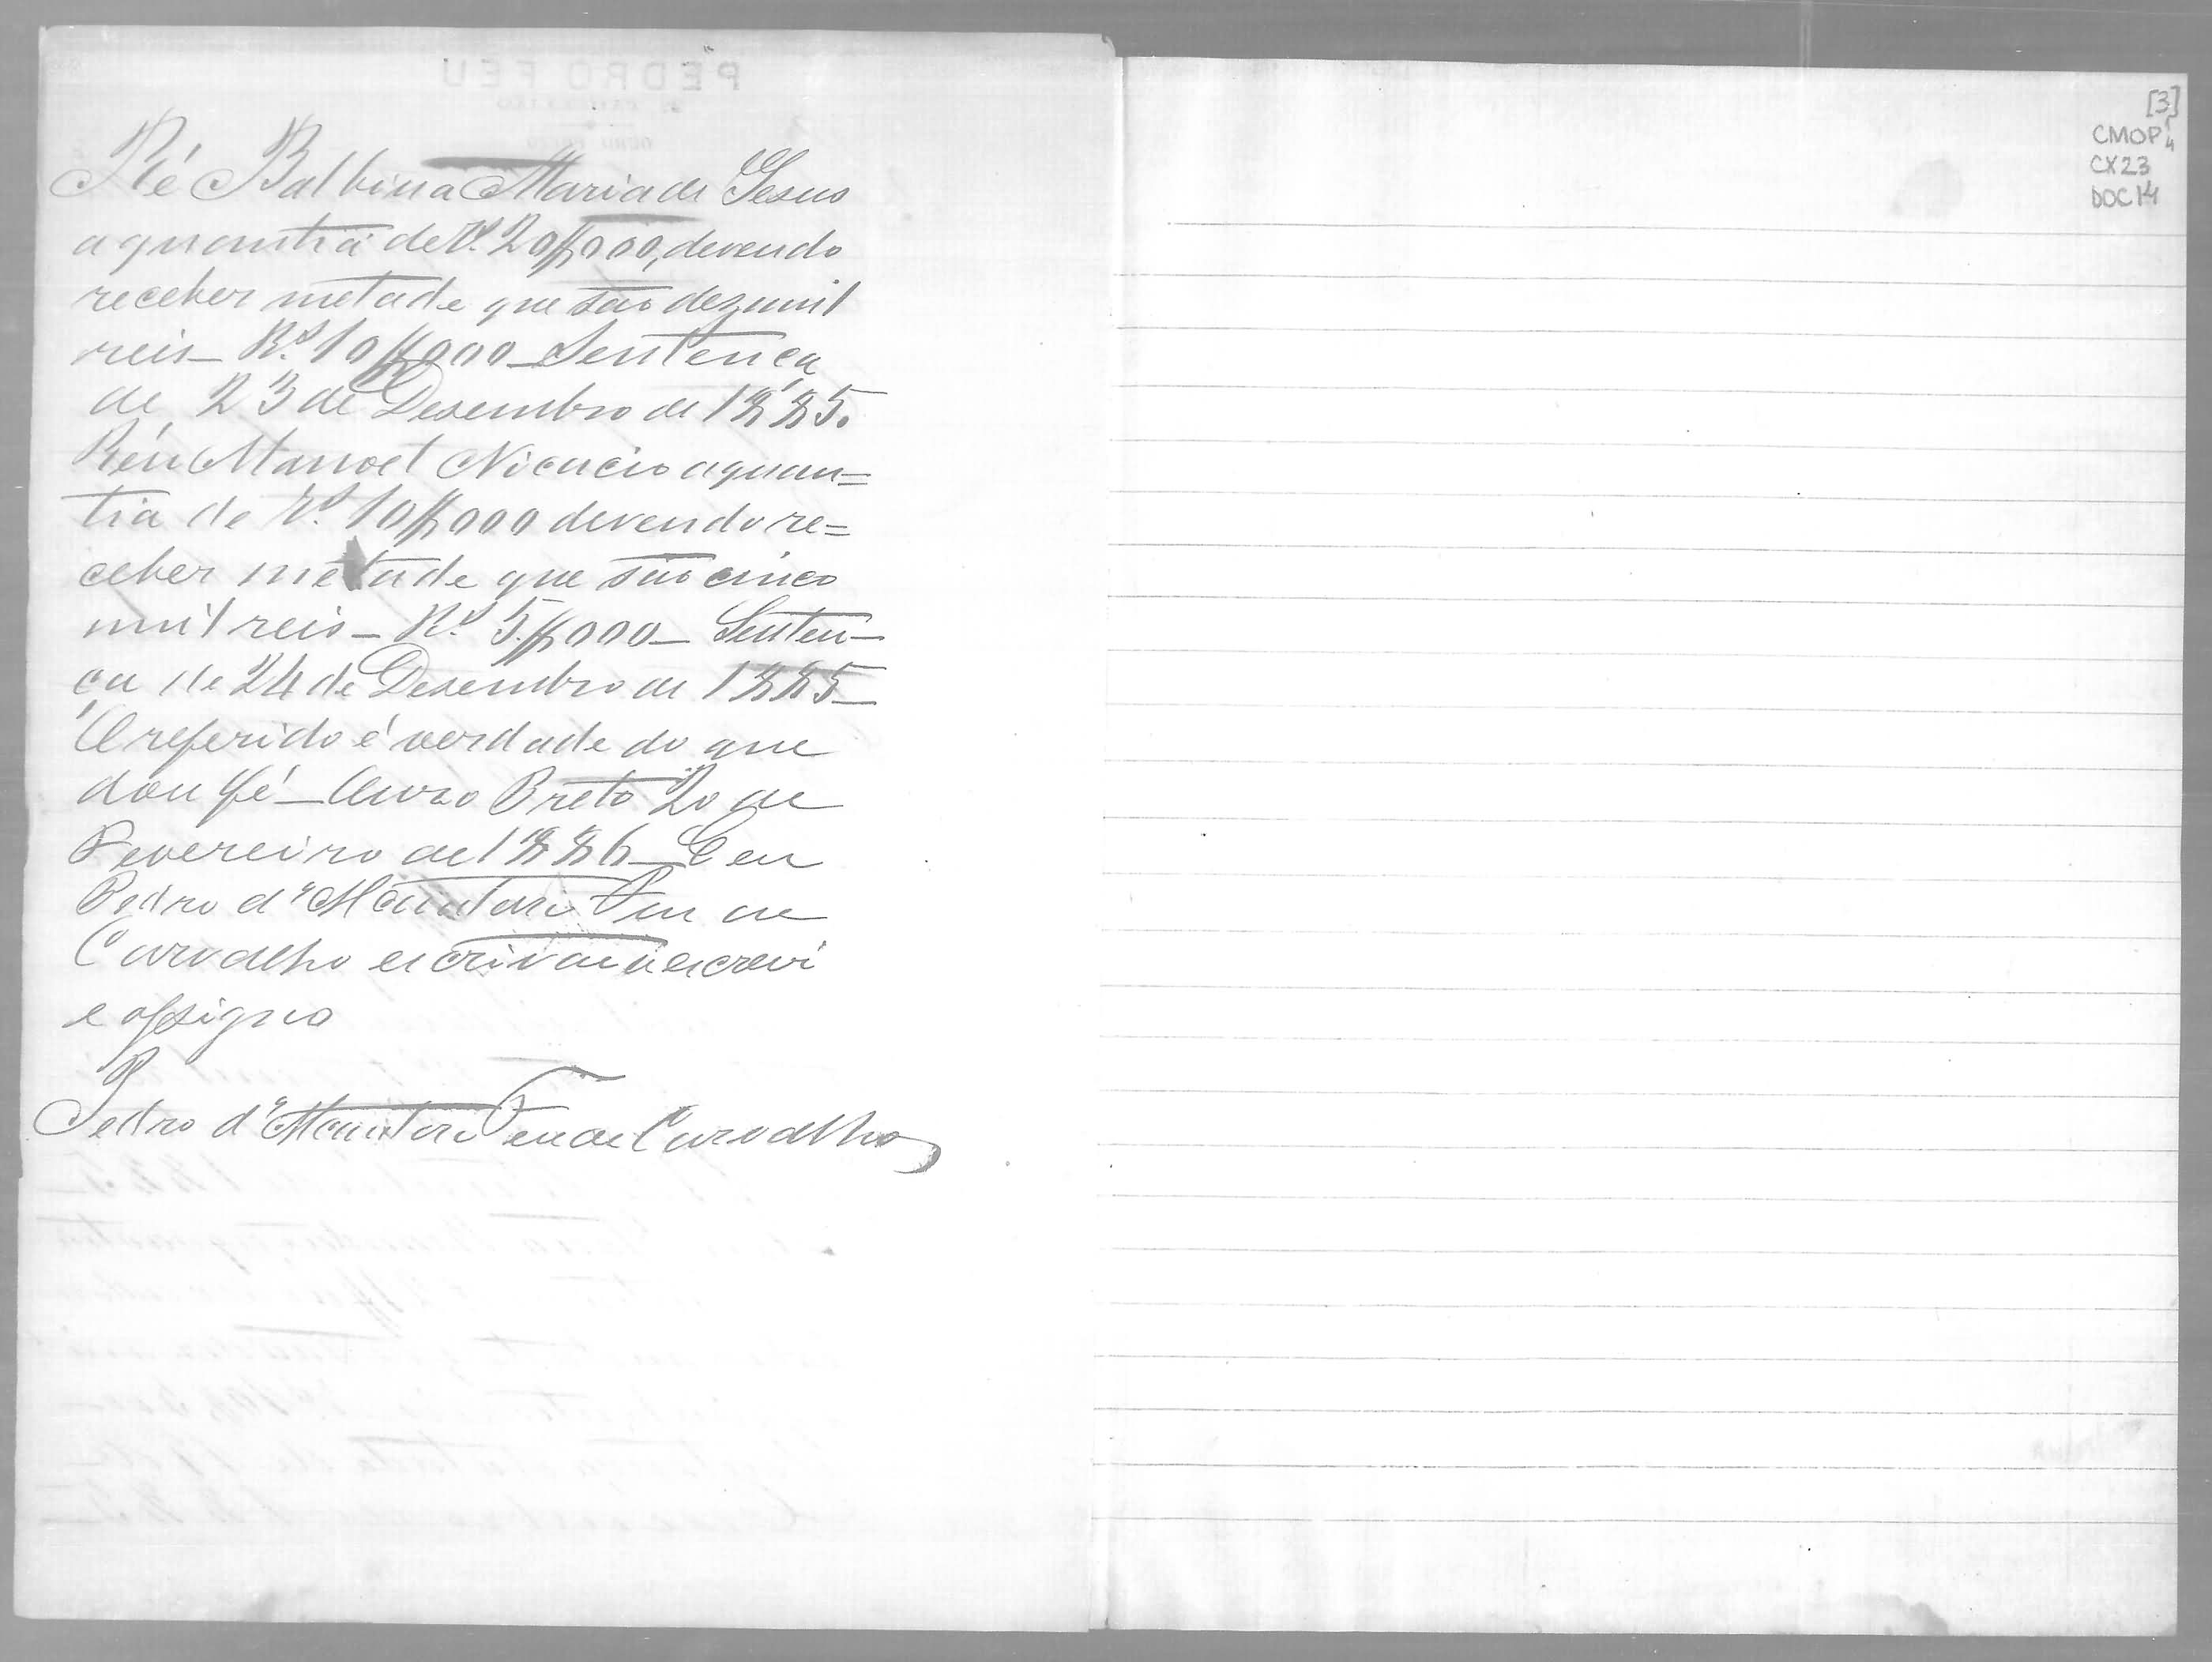 Ré Balbina Maria de Jesus
a quantia de Rs. 20$000, devendo
receber metade que são dez mil
reis _ Rs. 10$000 _ Sentença
de 23 de Desembro de 1885.
Réu Manoel Nicacio a quan=
tia de Rs. 10$000 devendo re=
ceber metade que são cinco
mil reis _ Rs. 5$000 _ Senten_
ça de 24 de Desembro de 1885 _
O referido é verdade do que
dou fé _ Ouro Preto 20 de
Fevereiro de 1886 _ E eu
Pedro d'Alcantara Feu de
Carvalho escrivão o escrevi
e assigno
Pedro d'Alcantara Feu de Carvalho
[3]
CMOP
CX23
DOC14
PEDRO FEU
OURO PRETO